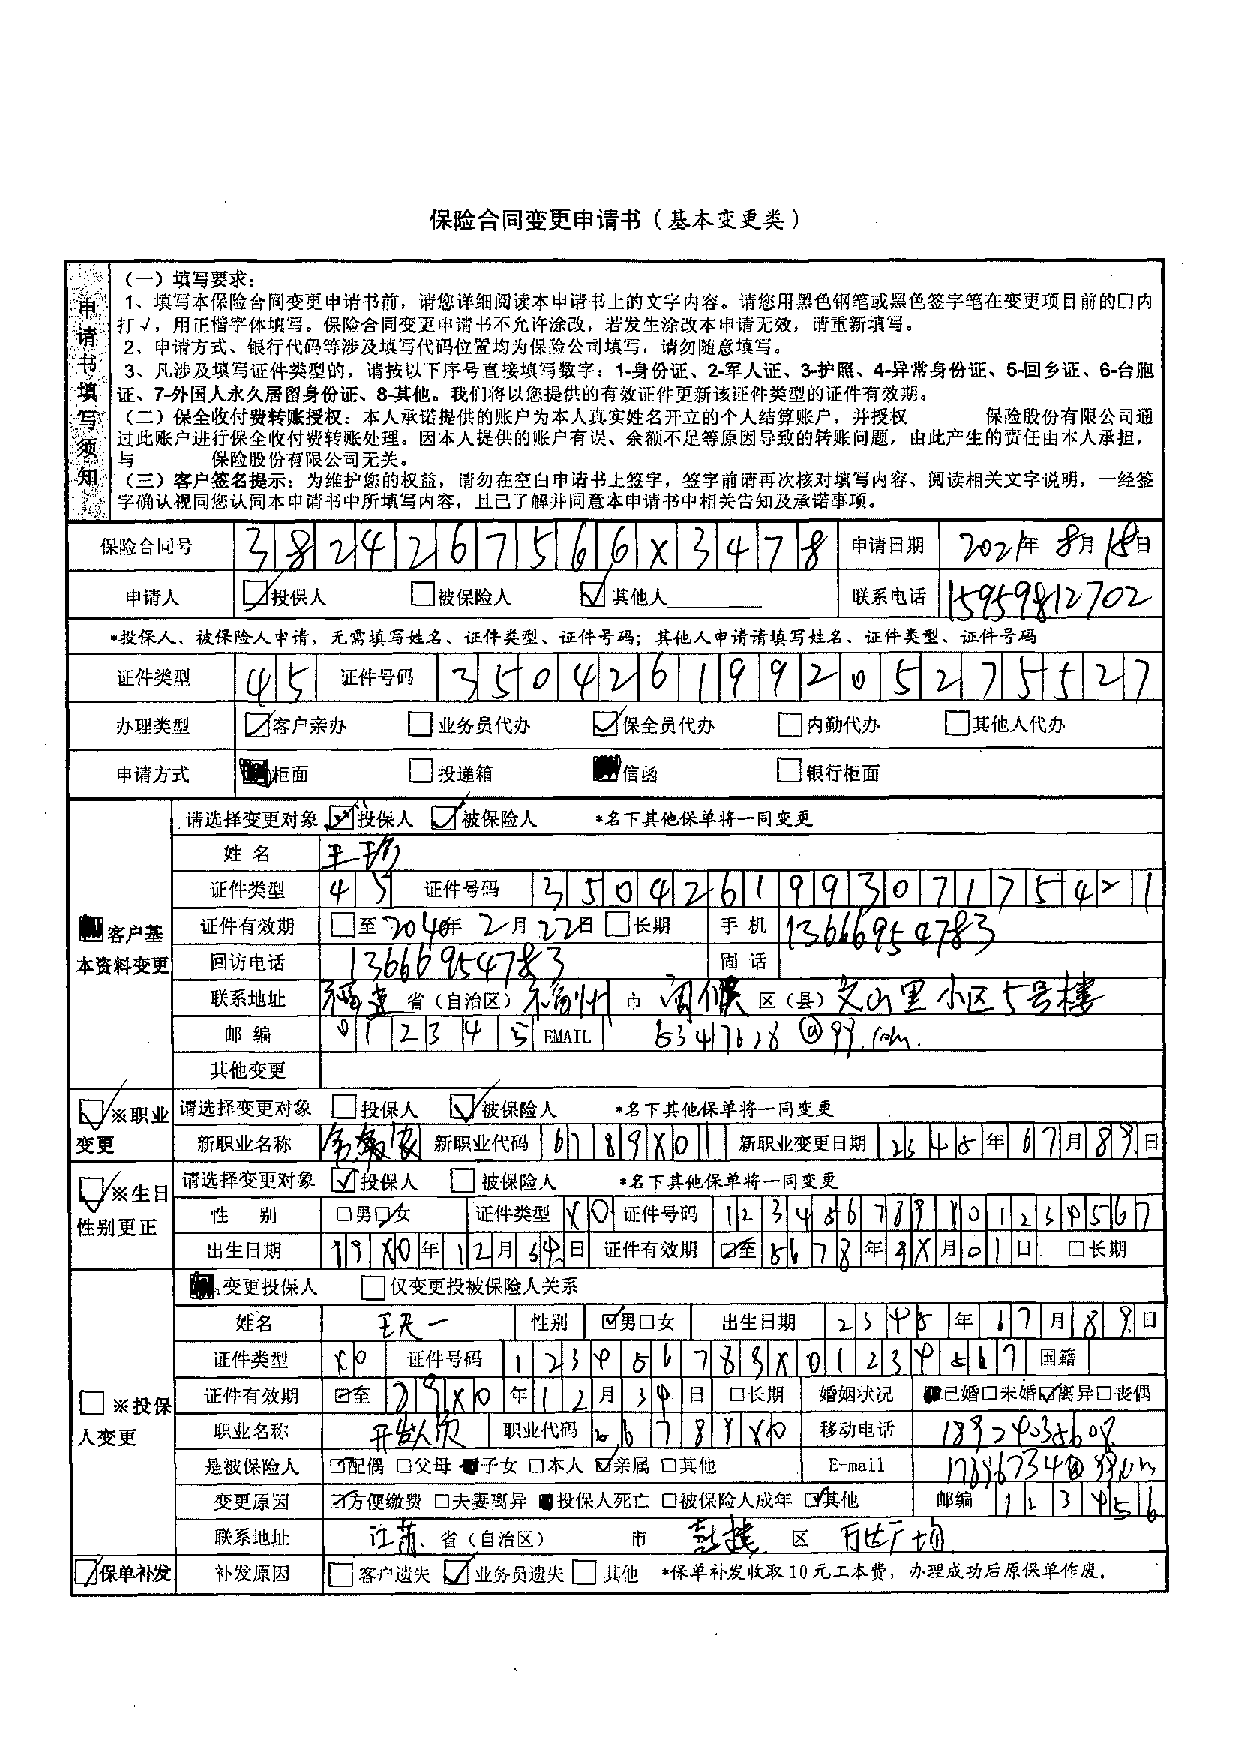 保险合同变更申请书（基本变更类）
申请书填写须知
（一）填写要求：
1、填写本保险合同变更申请书前，请您详细阅读本申请书上的文字内容。请您用黑色钢笔或黑色签字笔在变更项目前的口内
打√，用正楷字体填写。保险合同变更申请书不允许涂改，若发生涂改本申请无效，请重新填写。
2、申请方式、银行代码等涉及填写代码位置均为保险公司填写，请勿随意填写。
3、凡涉及填写证件类型的，请按以下序号直接填写数字：1-身份证、2-军人证、3-护照、4-异常身份证、5-回乡证、6-台胞
证、7-外国人永久居留身份证、8-其他。我们将以您提供的有效证件更新该证件类型的证件有效期。
（二）保全收付费转账授权：本人承诺提供的账户为本人真实姓名开立的个人结算账户，并授权 保险股份有限公司通
过此账户进行保全收付费转账处理。因本人提供的账户有误、余额不足等原因导致的转账问题，由此产生的责任由本人承担，
与 保险股份有限公司无关。
（三）客户签名提示：为维护您的权益，请勿在空白申请书上签字，签字前请再次核对填写内容、阅读相关文字说明，一经签
字确认视同您认同本申请书中所填写内容，且已了解并同意本申请书中相关告知及承诺事项。
保险合同号 3824267566X3478 申请日期 2021年8月18日
申请人 ☑投保人 □被保险人 ☑其他人 联系电话 15959812702
*投保人、被保险人申请，无需填写姓名、证件类型、证件号码；其他人申请请填写姓名、证件类型、证件号码
证件类型 45 证件号码 350426199205275527
办理类型 ☑客户亲办 □业务员代办 ☑保全员代办 □内勤代办 □其他人代办
申请方式 ■柜面 □投递箱 ■信函 □银行柜面
■客户基本资料变更 请选择变更对象 ☑投保人 ☑被保险人 *名下其他保单将一同变更
姓名 王珍
证件类型 45 证件号码 350426199307175421
证件有效期 □至2040年2月22日 □长期 手机 13666954783
回访电话 13666954783 固话
联系地址 福建 省（自治区） 福州 市 闽侯 区（县） 文山里小区5号楼
邮编 012345 EMAIL 5347628@99.com.
其他变更
☑※职业变更 请选择变更对象 □投保人 ☑被保险人 *名下其他保单将一同变更
新职业名称 新职业代码 6789X01 新职业变更日期 2345年67月89日
☑※生日性别更正 请选择变更对象 ☑投保人 □被保险人 *名下其他保单将一同变更
性别 □男☑女 证件类型 X0 证件号码 123456789X01234567
出生日期 19X0年12月34日 证件有效期 ☑至5678年9X月01日 □长期
■变更投保人 □仅变更投被保险人关系
姓名 王天一 性别 ☑男□女 出生日期 2345年67月89日
证件类型 X0 证件号码 123456789X01234567 国籍
□※投保人变更 证件有效期 ☑至89X0年12月34日 □长期 婚姻状况 ■已婚□未婚☑离异□丧偶
职业名称 开发人员 职业代码 移动电话
是被保险人 ☑配偶 □父母 ■子女 □本人 ☑亲属 □其他 E-mail
变更原因 ☑方便缴费 □夫妻离异 ■投保人死亡 □被保险人成年 ☑其他 邮编 123456
联系地址 江苏 省（自治区） 市 鼓楼 区 万达广场
☑保单补发 补发原因 □客户遗失 ☑业务员遗失 □其他 *保单补发收取10元工本费，办理成功后原保单作废。